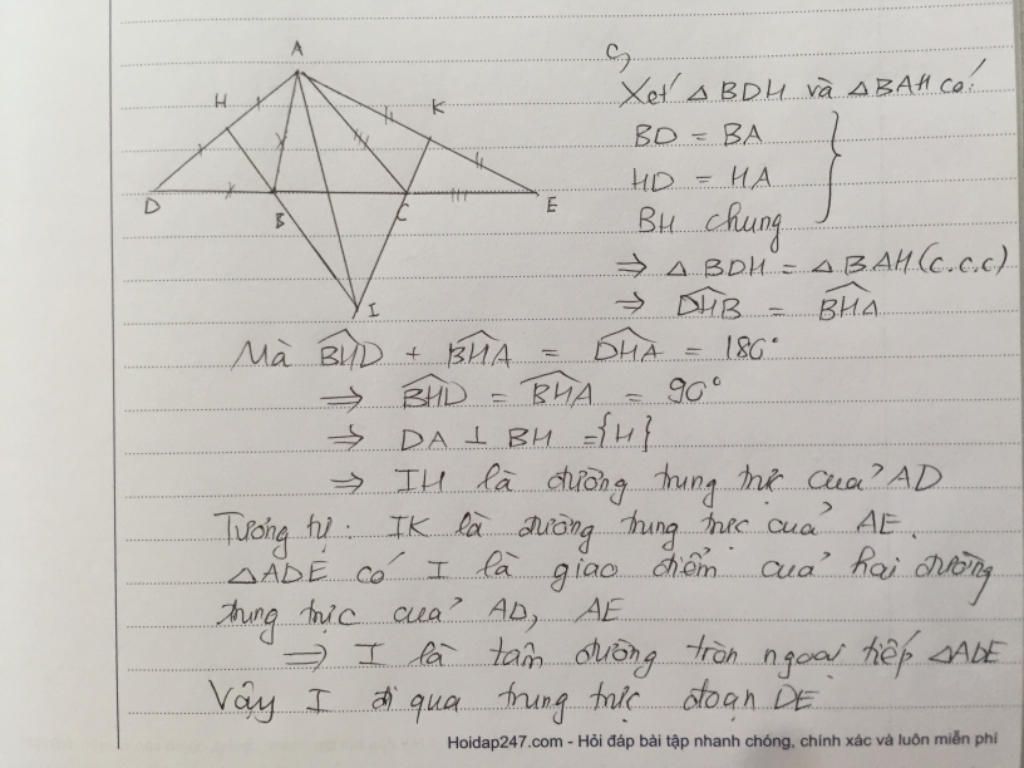 A
H
K
D
B
C
E
I
c,
Xét △BDH và △BAH có:
BD = BA
HD = HA
BH chung
⇒ △BDH = △BAH (c.c.c)
⇒ \widehat{DHB} = \widehat{BHA}
Mà \widehat{BHD} + \widehat{BHA} = \widehat{DHA} = 180°
⇒ \widehat{BHD} = \widehat{BHA} = 90°
⇒ DA ⊥ BH = {H}
⇒ IH là đường trung trực của AD
Tương tự: IK là đường trung trực của AE.
△ADE có I là giao điểm của hai đường
trung trực của AD, AE
⇒ I là tâm đường tròn ngoại tiếp △ADE
Vậy I đi qua trung trực đoạn DE
Hoidap247.com - Hỏi đáp bài tập nhanh chóng, chính xác và luôn miễn phí